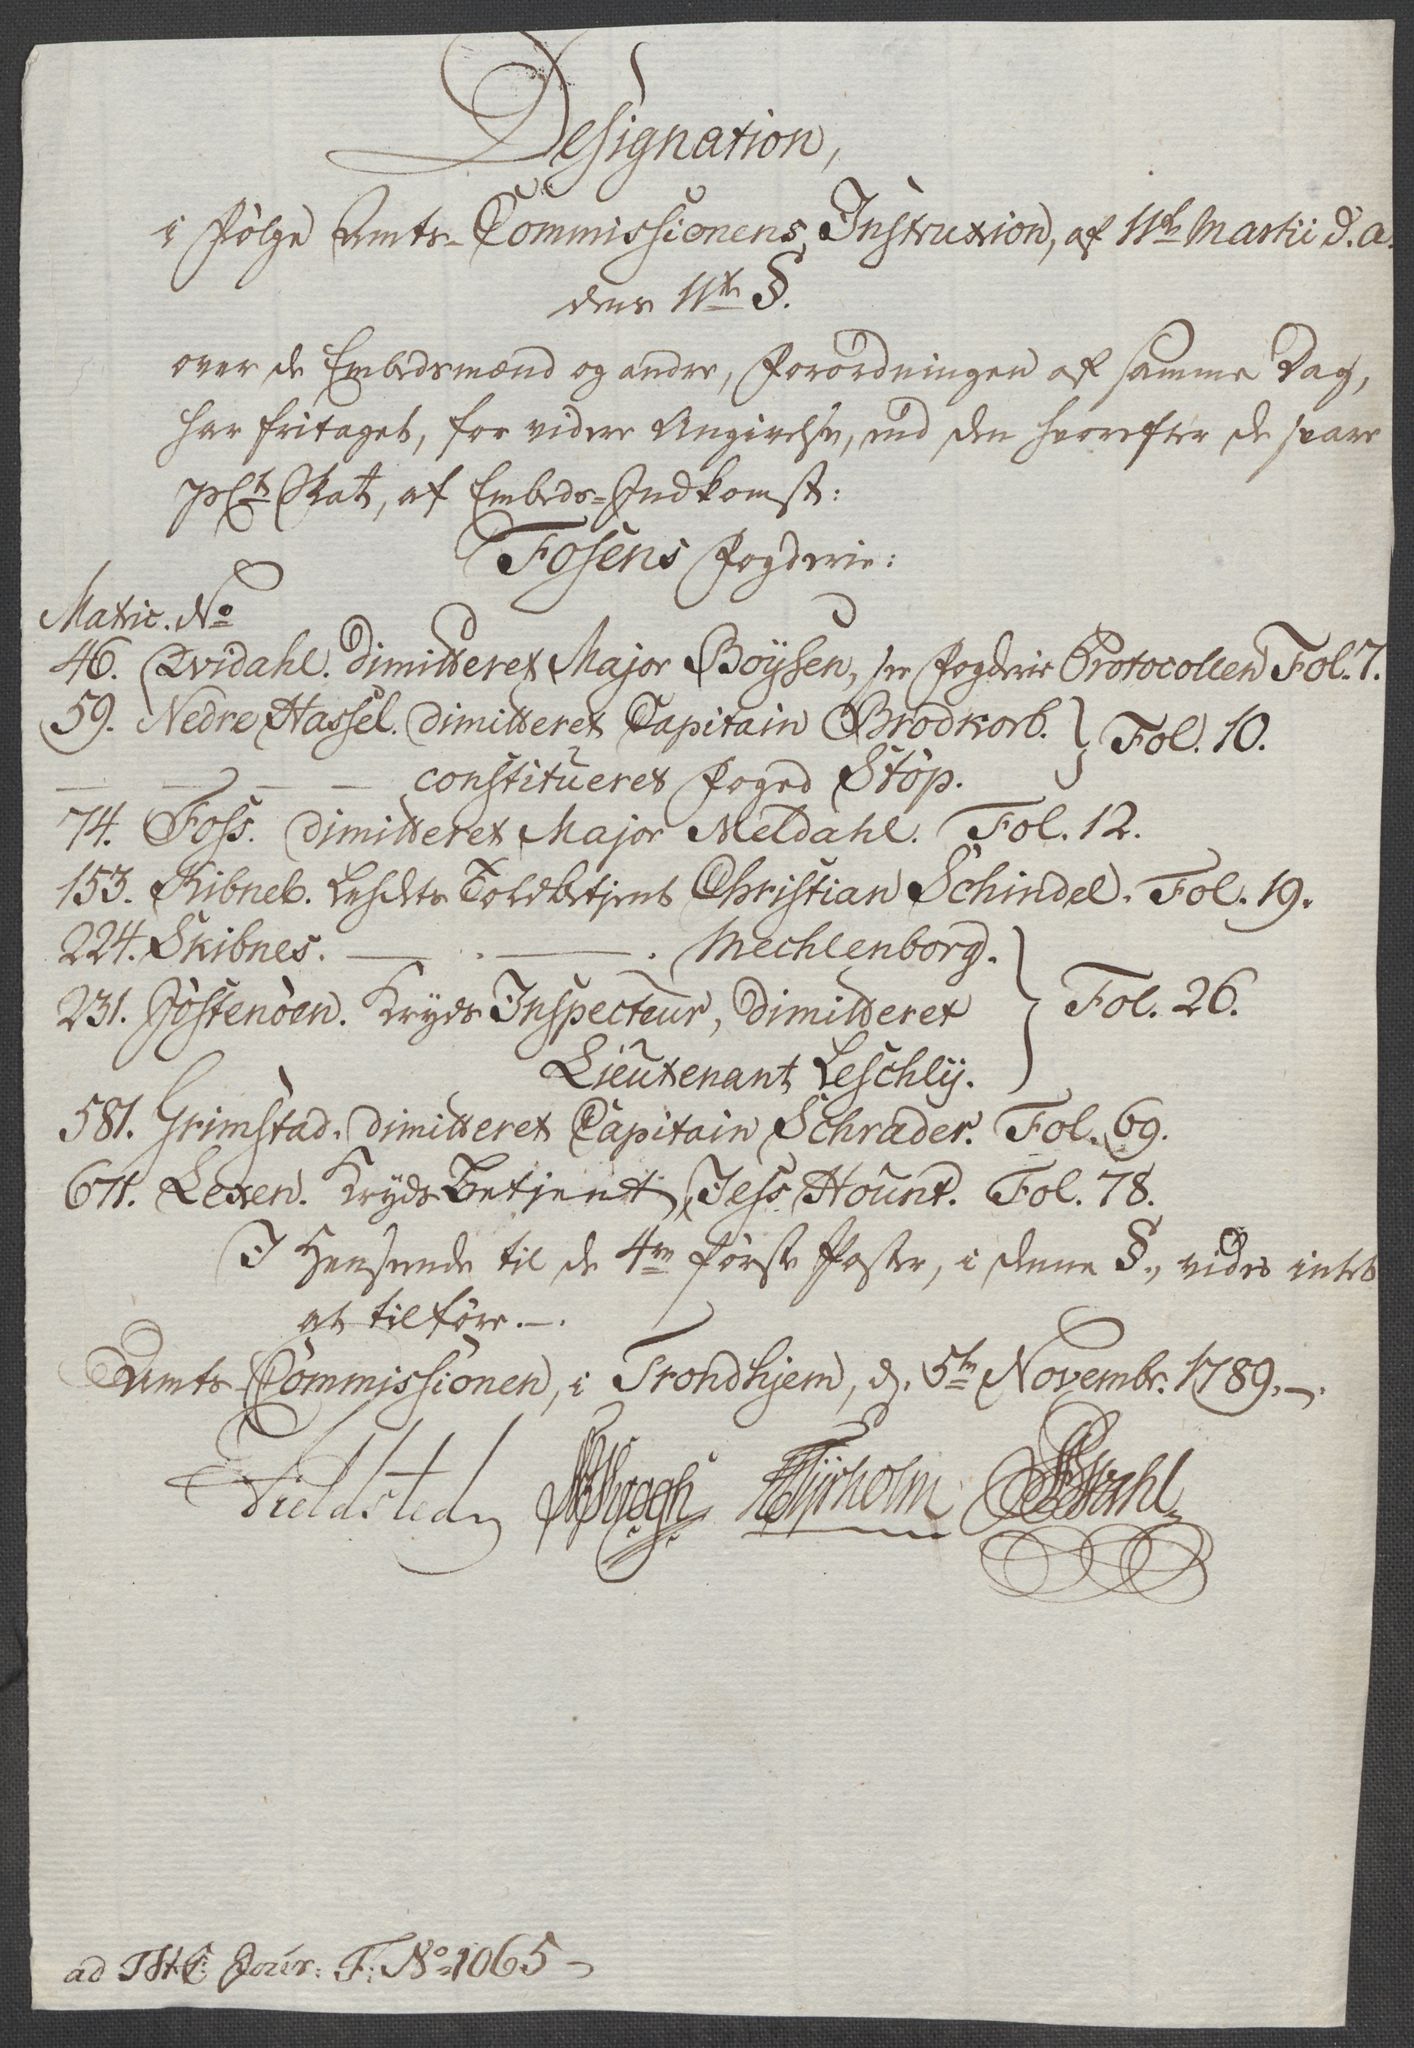 Designation,
i Følge Amts-Commissionens Instruxion, af 11te Martii d.a.
dens 11te §.
over de Embedsmænd og andre, Forordningen af samme Dag,
har fritaget, for videre Angivelse, end den hvorefter de svare
pCt Skat, af Embeds-Indkomst:
Fosens Fogderie:
Matric. No
46. Qvidahl. Dimitteret Major Boÿsen, see Fogderie Protocollen Fol. 7.
59. Nedre Hassel. dimitteret Capitain Brodkorb. } Fol. 10.
— — — — constitueret Foged Stöp.
74. Foss. dimitteret Major Meldahl. Fol. 12.
153. Kibneb. Toldbetjent Christian Schindel. Fol. 19.
224. Skibnes. — . — . Mechlenborg.
231. Jøstenöen. Kryds Inspecteur, dimitteret } Fol. 26.
Lieutenant Leschlÿ.
581. Grimstad. dimitteret Capitain Schrader. Fol. 69.
671. Lexen. Kryds Betjent, Jess Hount. Fol. 78.
I Henseende til de 4re første Poster, i denne §., vides intet
at tilføre.—.
Amts-Commissionen, i Trondhjem, d. 5te Novembr. 1789.—.
Fieldsted Krogh Tÿrholm Stahl
ad Jour: F: No 1065—